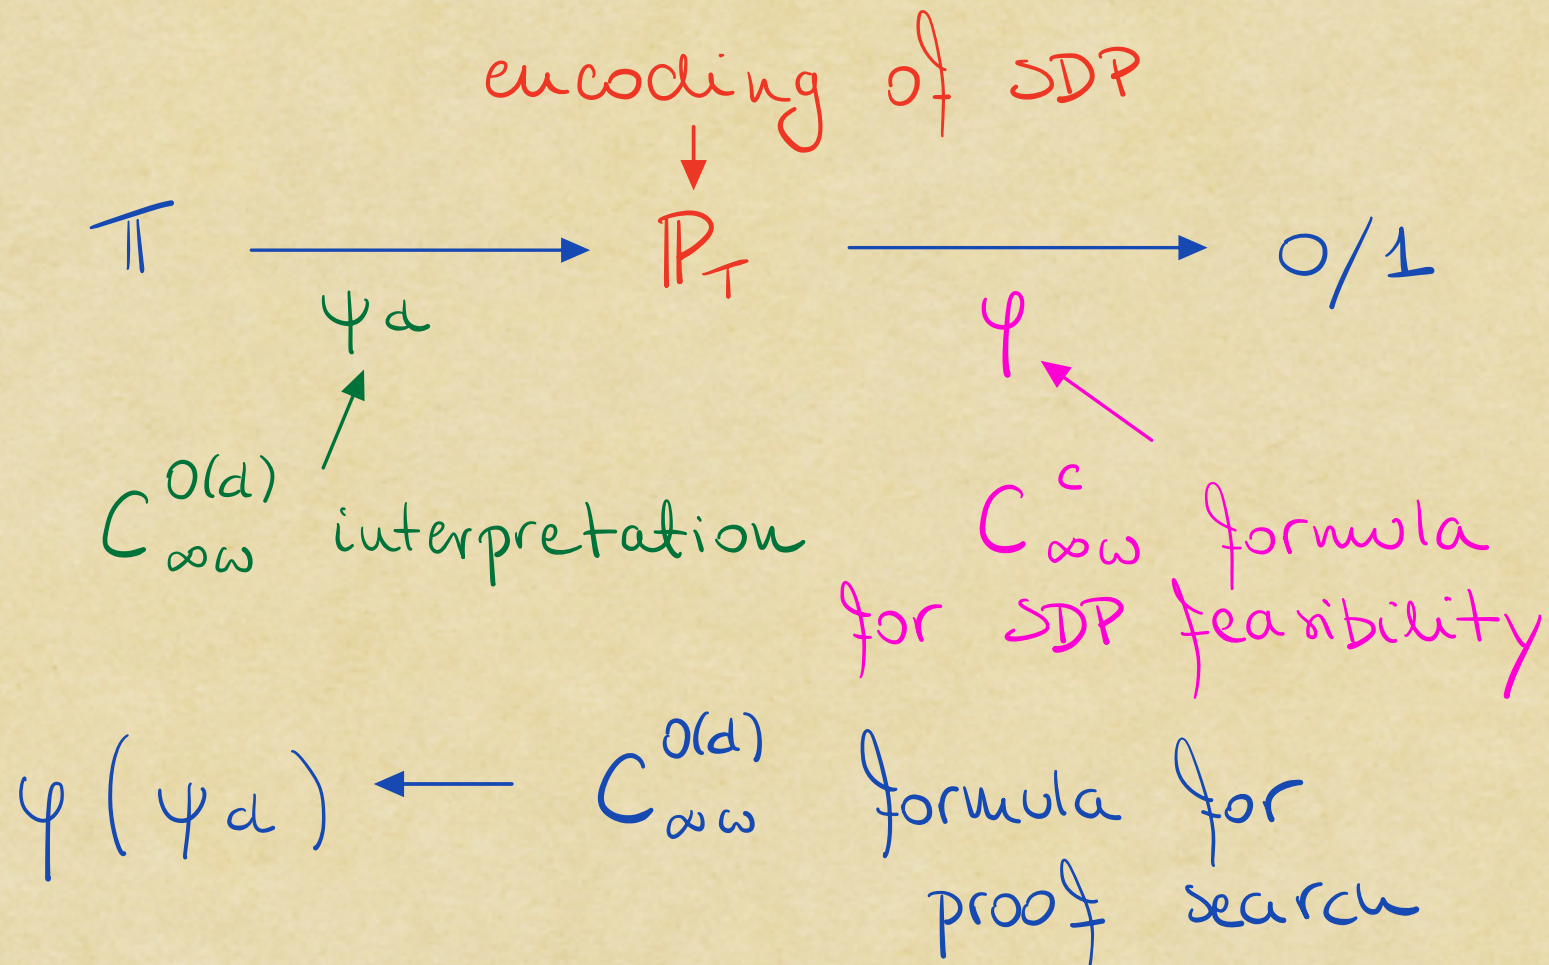 encoding of SDP
𝕋 → ℙ_T → 0/1
ψ_d φ
C^{O(d)}_{∞ω} interpretation
C^{c}_{∞ω} formula
for SDP feasibility
φ(ψ_d) ← C^{O(d)}_{∞ω} formula for
proof search